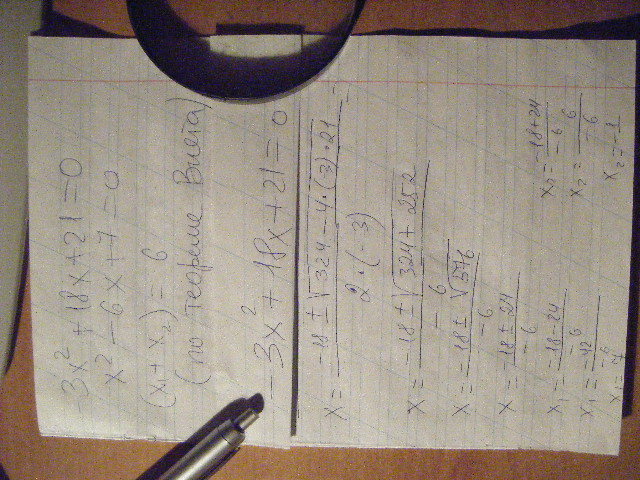 -3x² + 18x + 21 = 0
x² - 6x + 7 = 0
(x₁ + x₂) = 6
(по теореме Виета)
-3x² + 18x + 21 = 0
x = (-18 ± √(324 - 4·(3)·21)) / (2·(-3))
x = (-18 ± √(324 + 252)) / (-6)
x = (-18 ± √576) / (-6)
x = (-18 ± 24) / (-6)
x₁ = (-18 - 24) / (-6)
x₁ = (-42) / (-6)
x₁ = 7
x₂ = (-18 + 24) / (-6)
x₂ = 6 / (-6)
x₂ = -1